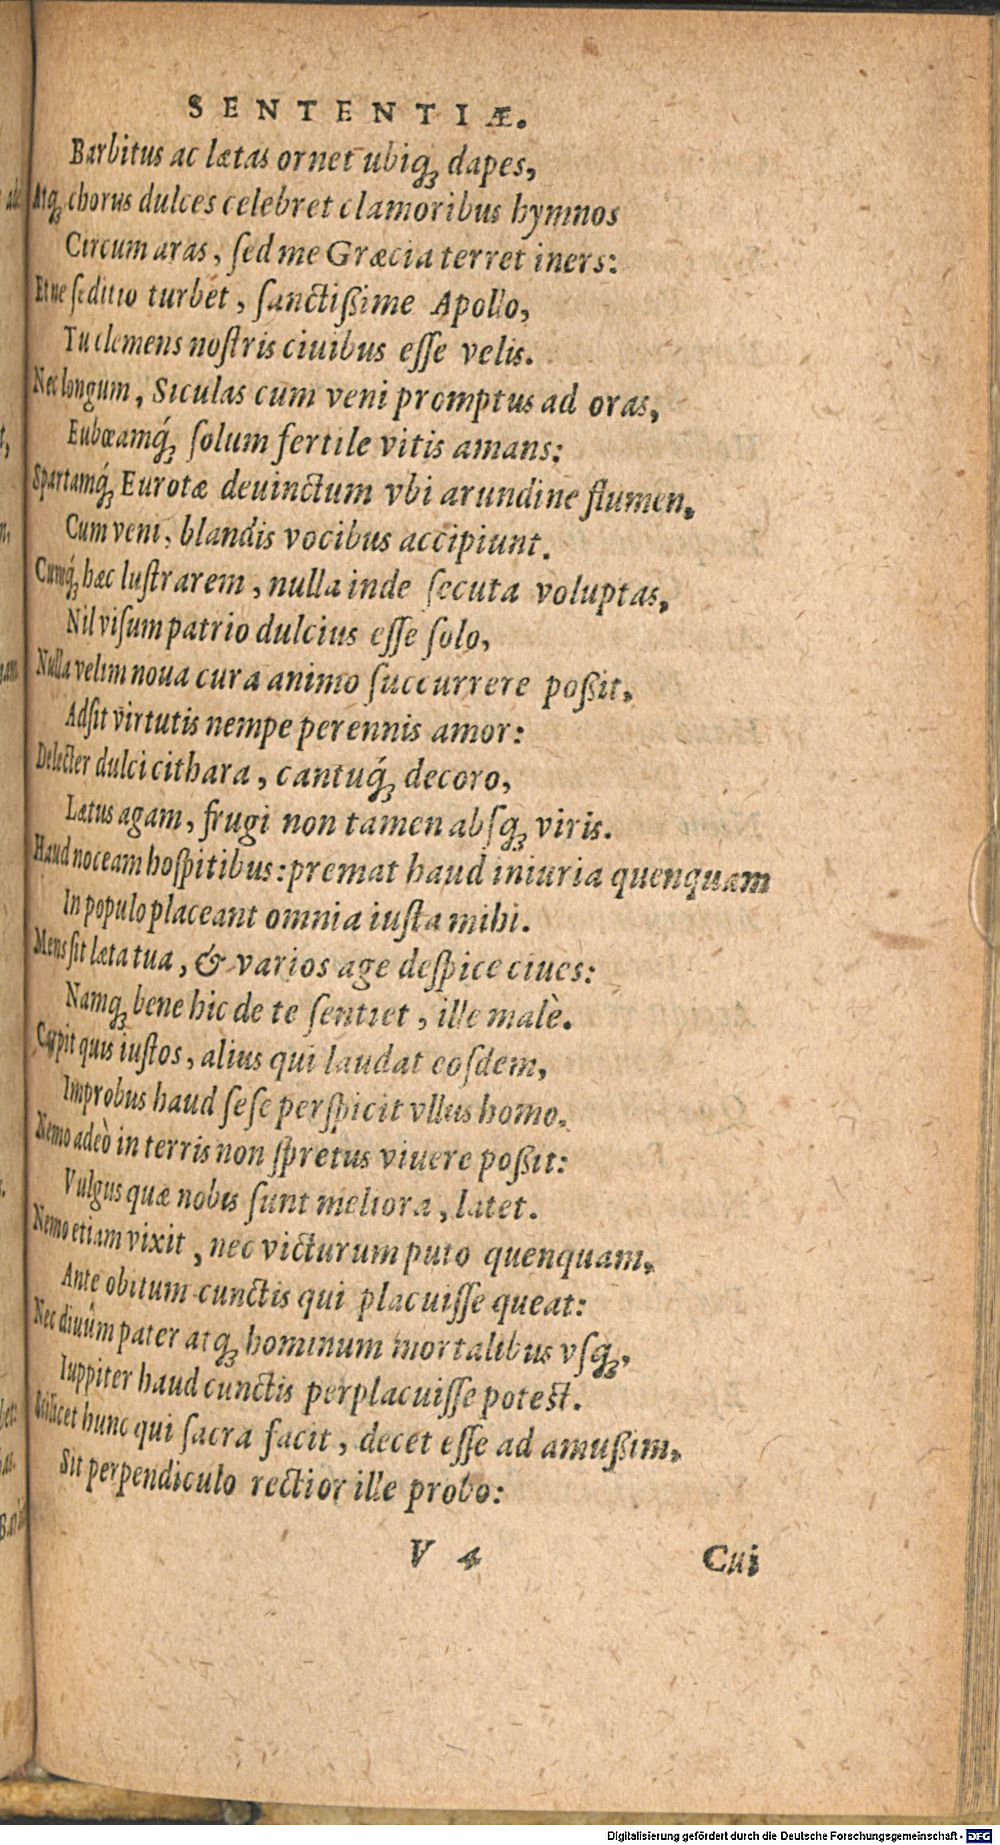 SENTENTIÆ.
Barbitus ac lætas ornet ubiq́ꝫ dapes,
Atqꝫ chorus dulces celebret clamoribus hymnos
Circum aras, ſed me Græcia terret iners:
Et ne ſeditio turbet, ſanctißime Apollo,
Tu clemens noſtris ciuibus eſſe velis.
Nec longum, Siculas cum veni promptus ad oras,
Eubœamq́ꝫ ſolum fertile vitis amans:
Spartamq́ꝫ Eurotæ deuinctum vbi arundine flumen,
Cum veni, blandis vocibus accipiunt.
Cumq́ꝫ hæc luſtrarem, nulla inde ſecuta voluptas,
Nil viſum patrio dulcius eſſe ſolo,
Nulla velim noua cura animo ſuccurrere poßit,
Adſit virtutis nempe perennis amor:
Delecter dulci cithara, cantuq́ꝫ decoro,
Lætus agam, frugi non tamen abſqꝫ viris.
Haud noceam hoſpitibus: premat haud iniuria quenquam
In populo placeant omnia iuſta mihi.
Mens ſit læta tua, & varios age deſpice ciues:
Namqꝫ bene hic de te ſentiet, ille malè.
Carpit quis iuſtos, alius qui laudat eoſdem,
Improbus haud ſeſe perſpicit vllus homo.
Nemo adeò in terris non ſpretus viuere poßit:
Vulgus quæ nobis ſunt meliora, latet.
Nemo etiam vixit, nec victurum puto quenquam,
Ante obitum cunctis qui placuiſſe queat:
Nec diuûm pater atqꝫ hominum mortalibus vſqꝫ,
Iuppiter haud cunctis perplacuiſſe poteſt.
Scilicet hunc qui ſacra facit, decet eſſe ad amußim,
Sit perpendiculo rectior ille probo:
V 4 Cui
Digitalisierung gefördert durch die Deutsche Forschungsgemeinschaft - DFG